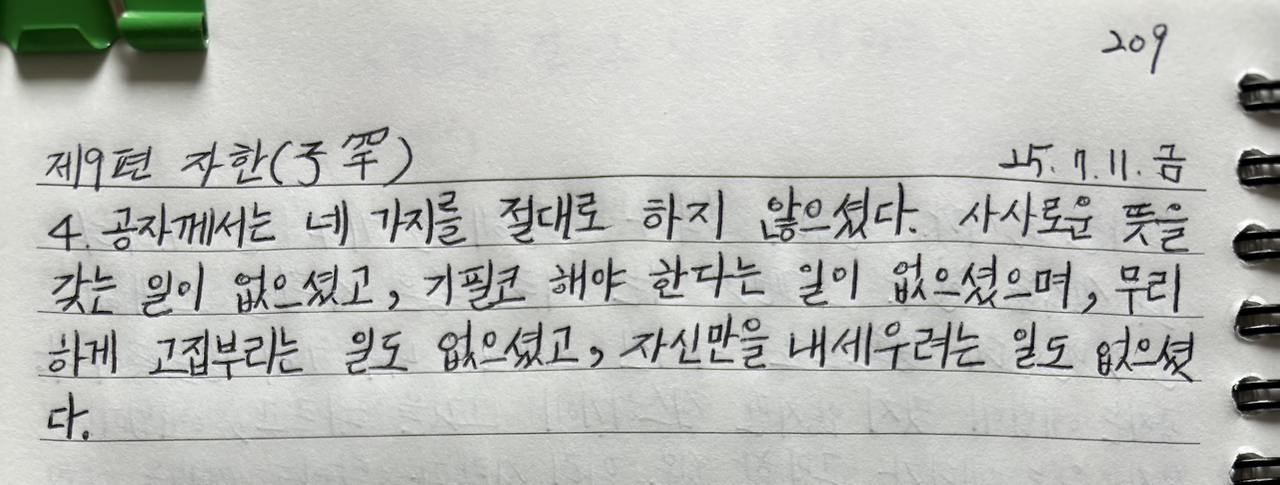 209
제9편 자한(子罕) 25. 7. 11. 금
4. 공자께서는 네 가지를 절대로 하지 않으셨다. 사사로운 뜻을
갖는 일이 없으셨고, 기필코 해야 한다는 일이 없으셨으며, 무리
하게 고집부리는 일도 없으셨고, 자신만을 내세우려는 일도 없으셨
다.